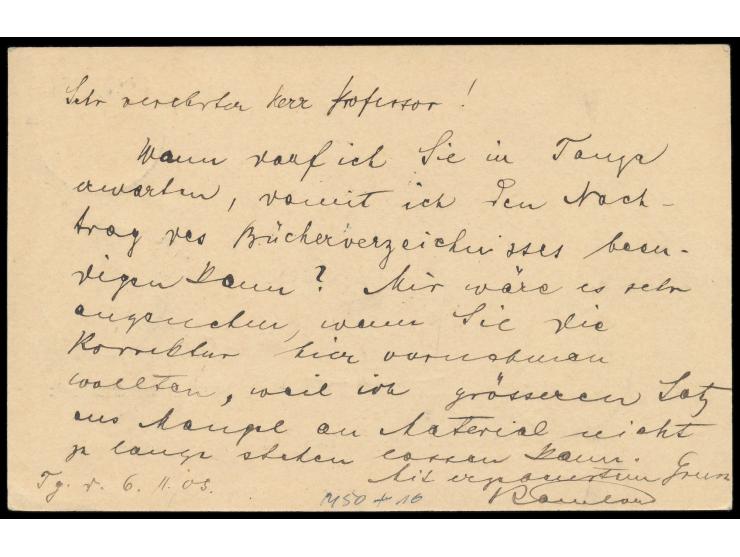 Sehr verehrter Herr Professor!
Wann darf ich Sie in Tanga
erwarten, damit ich den Nach-
trag des Bücherverzeichnisses been-
digen kann? Mir wäre es sehr
angenehm, wenn Sie die
Korrektur hier vornehmen
wollten, weil ich grösseren Satz
aus Mangel an Material nicht
so lange stehen lassen kann.
Mit ergebenstem Gruss
Tg. d. 6. 11. 03.
M50 + 16